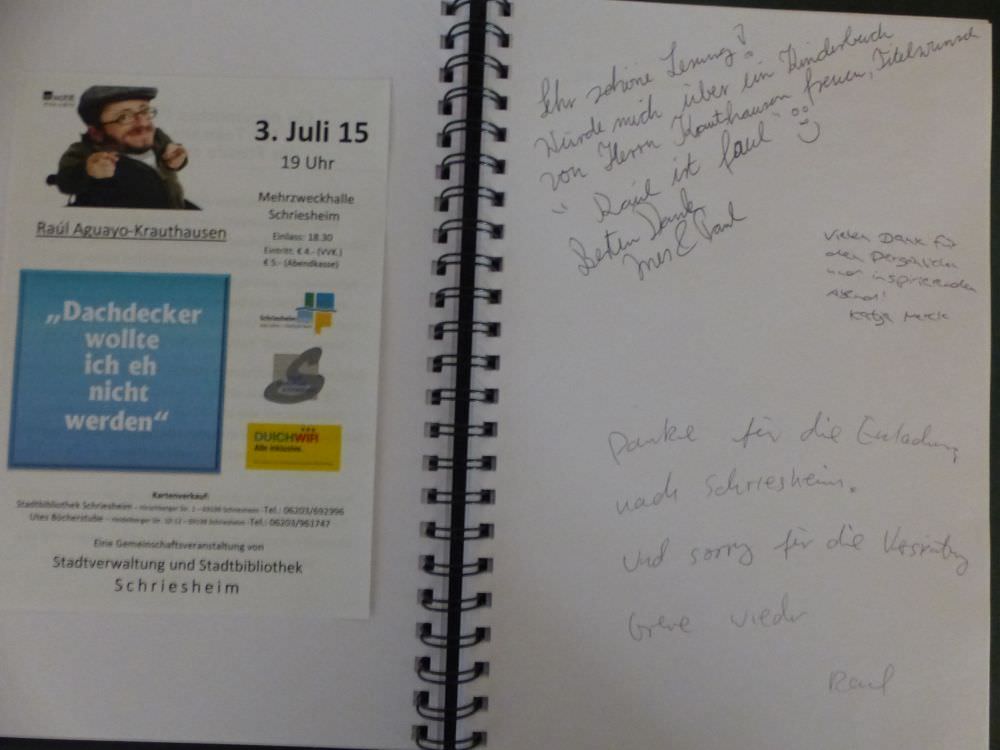 3. Juli 15
19 Uhr
Mehrzweckhalle
Schriesheim
Einlass: 18.30
Eintritt: € 4.- (VVK.)
€ 5.- (Abendkasse)
Raúl Aguayo-Krauthausen
„Dachdecker
wollte
ich eh
nicht
werden“
Schriesheim
DUICHWIR
Alle inklusive.
Kartenverkauf:
Stadtbibliothek Schriesheim – Hirschberger Str. 1 – 69198 Schriesheim -Tel.: 06203/692996
Utes Bücherstube – Heidelberger Str. 10-12 – 69198 Schriesheim -Tel.: 06203/961747
Eine Gemeinschaftsveranstaltung von
Stadtverwaltung und Stadtbibliothek
Schriesheim
Sehr schöne Lesung!
Würde mich über ein Kinderbuch
von Herrn Krauthausen freuen, Titelwunsch
"Raúl ist faul" ☺
Besten Dank
Ines & Paul
Vielen Dank für
den persönlichen
und inspirierenden
Abend!
Katja
Danke für die Einladung
nach Schriesheim.
Und sorry für die Verspätung
Gerne wieder
Raul